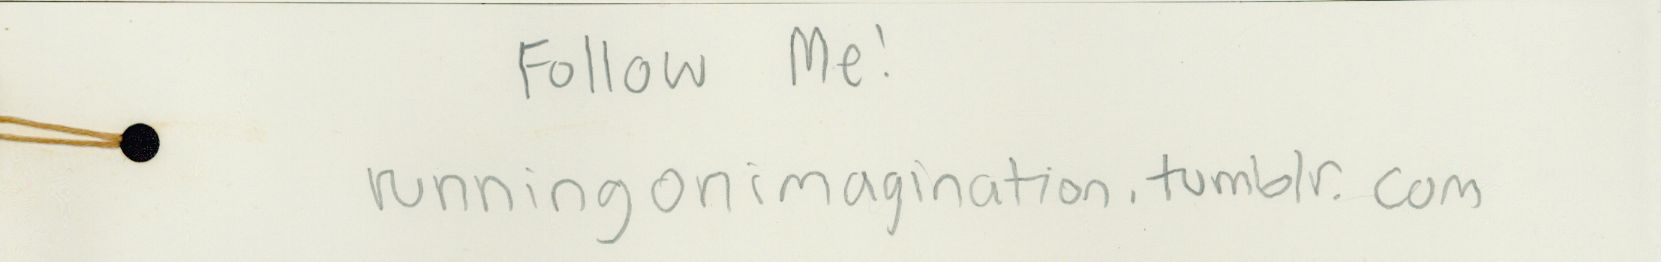 Follow Me!
runningonimagination.tumblr.com